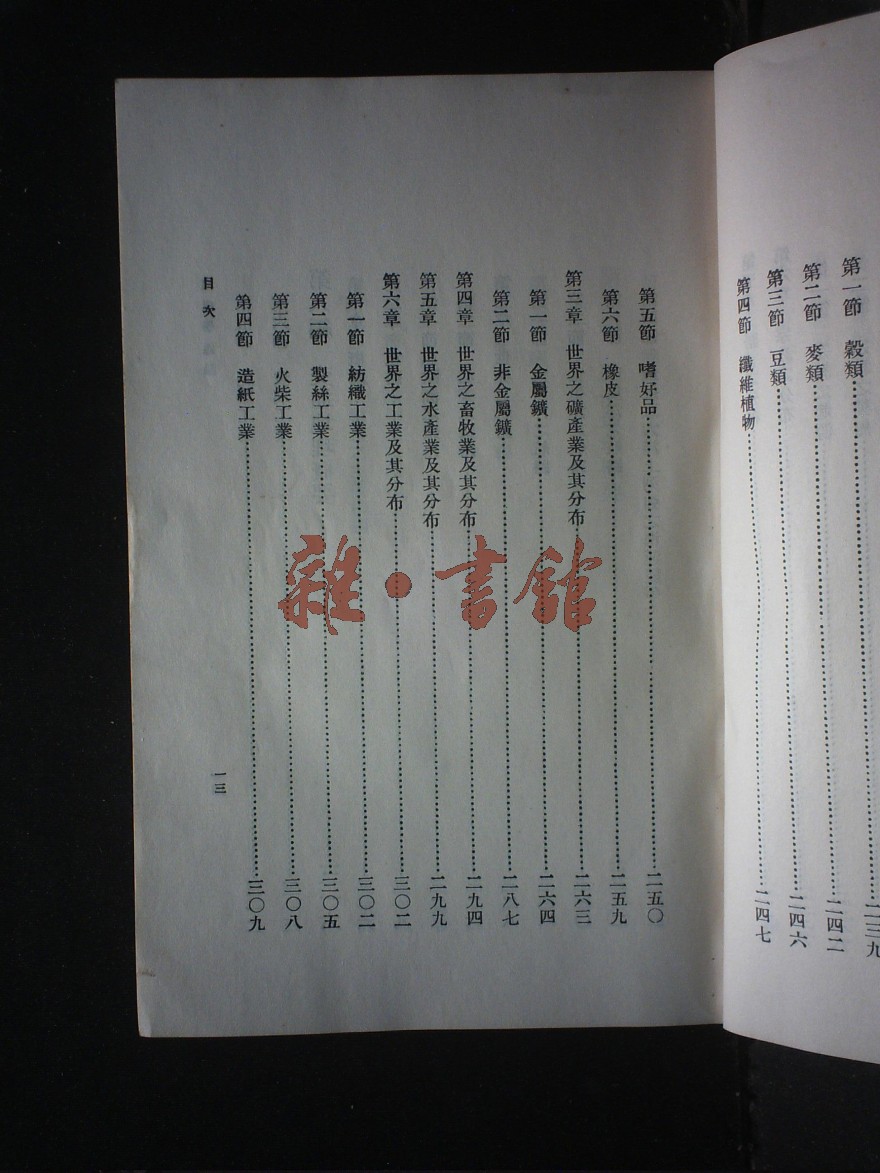 第一節 穀類……二三九
第二節 麥類……二四二
第三節 豆類……二四六
第四節 纖維植物……二四七
第五節 嗜好品……二五〇
第六節 橡皮……二五九
第三章 世界之礦產業及其分布……二六三
第一節 金屬鑛……二六四
第二節 非金屬鑛……二八七
第四章 世界之畜牧業及其分布……二九四
第五章 世界之水產業及其分布……二九九
第六章 世界之工業及其分布……三〇二
第一節 紡織工業……三〇二
第二節 製絲工業……三〇五
第三節 火柴工業……三〇八
第四節 造紙工業……三〇九
目次
一三
雜·書館